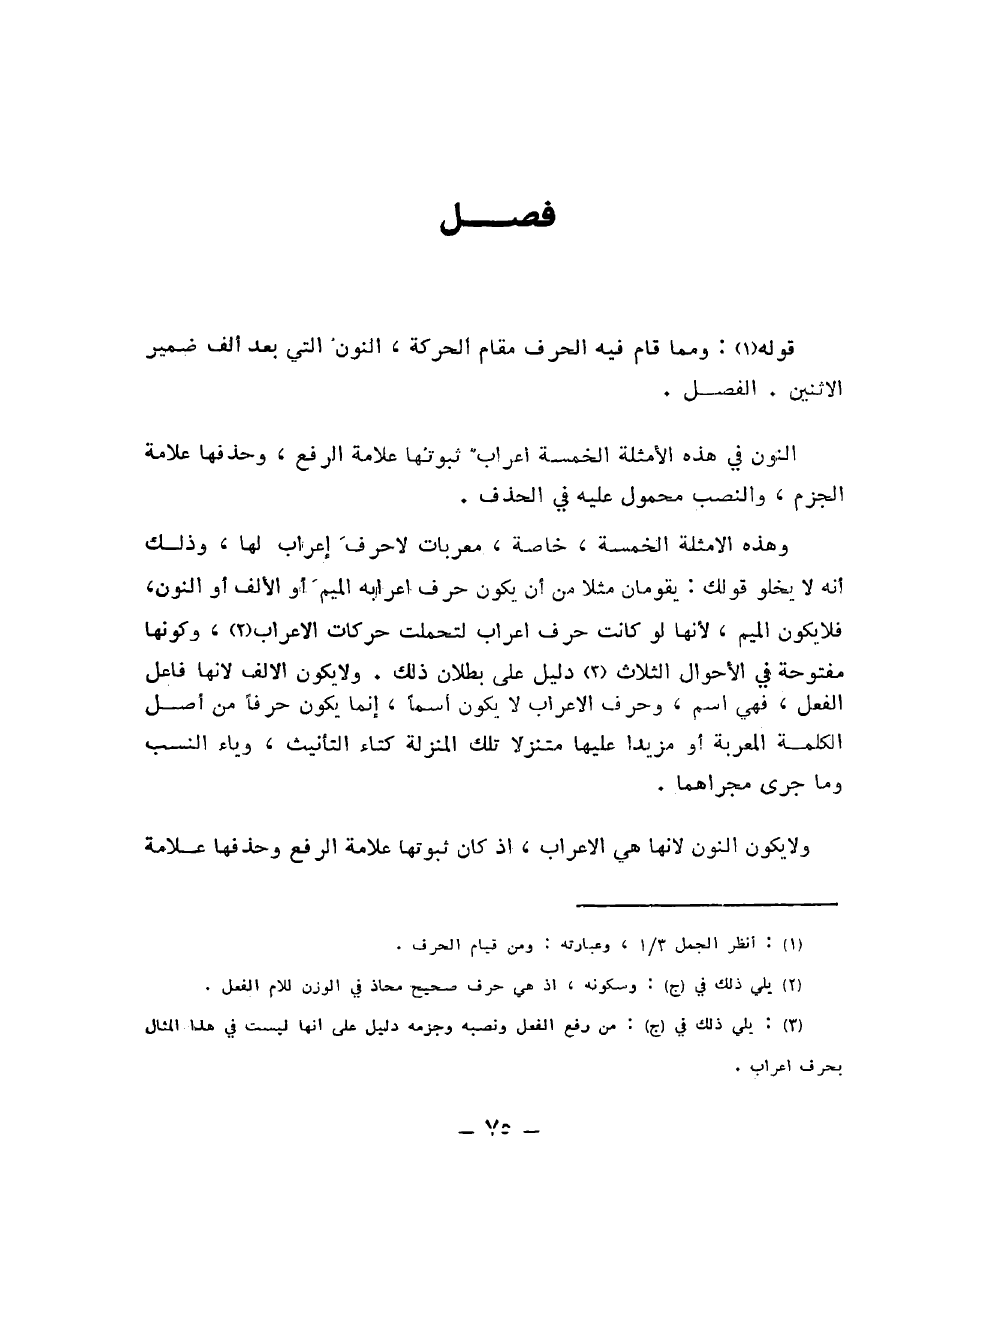 فصـــــل
قوله(١) : ومما قام فيه الحرف مقام الحركة ، النونُ التي بعد ألف ضمير
الاثنين . الفصـــل .
النون في هذه الأمثلة الخمسة اعرابٌ ثبوتها علامة الرفع ، وحذفها علامة
الجزم ، والنصب محمول عليه في الحذف .
وهذه الامثلة الخمسـة ، خاصة ، معربات لاحرفَ إعراب لها ، وذلـك
أنه لا يخلو قولك : يقومان مثلا من أن يكون حرف اعرابه الميمَ أو الألف أو النون،
فلايكون الميم ، لأنها لو كانت حرف اعراب لتحملت حركات الاعراب(٢) ، وكونها
مفتوحة في الأحوال الثلاث (٣) دليل على بطلان ذلك . ولايكون الالف لانها فاعل
الفعل ، فهي اسم ، وحرف الاعراب لا يكون أسماً ، إنما يكون حرفاً من أصـــل
الكلمـــة المعربة أو مزيدا عليها متنزلا تلك المنزلة كتاء التأنيث ، وياء النسـب
وما جرى مجراهما .
ولايكون النون لانها هي الاعراب ، اذ كان ثبوتها علامة الرفع وحذفها عـــلامة
(١) : أنظر الجمل ١/٣ ، وعبارته : ومن قيام الحرف .
(٢) يلي ذلك في (ج) : وسكونه ، اذ هي حرف صحيح محاذ في الوزن للام الفعل .
(٣) : يلي ذلك في (ج) : من رفع الفعل ونصبه وجزمه دليل على انها ليست في هذا المثال
بحرف اعراب .
— ٧٥ —